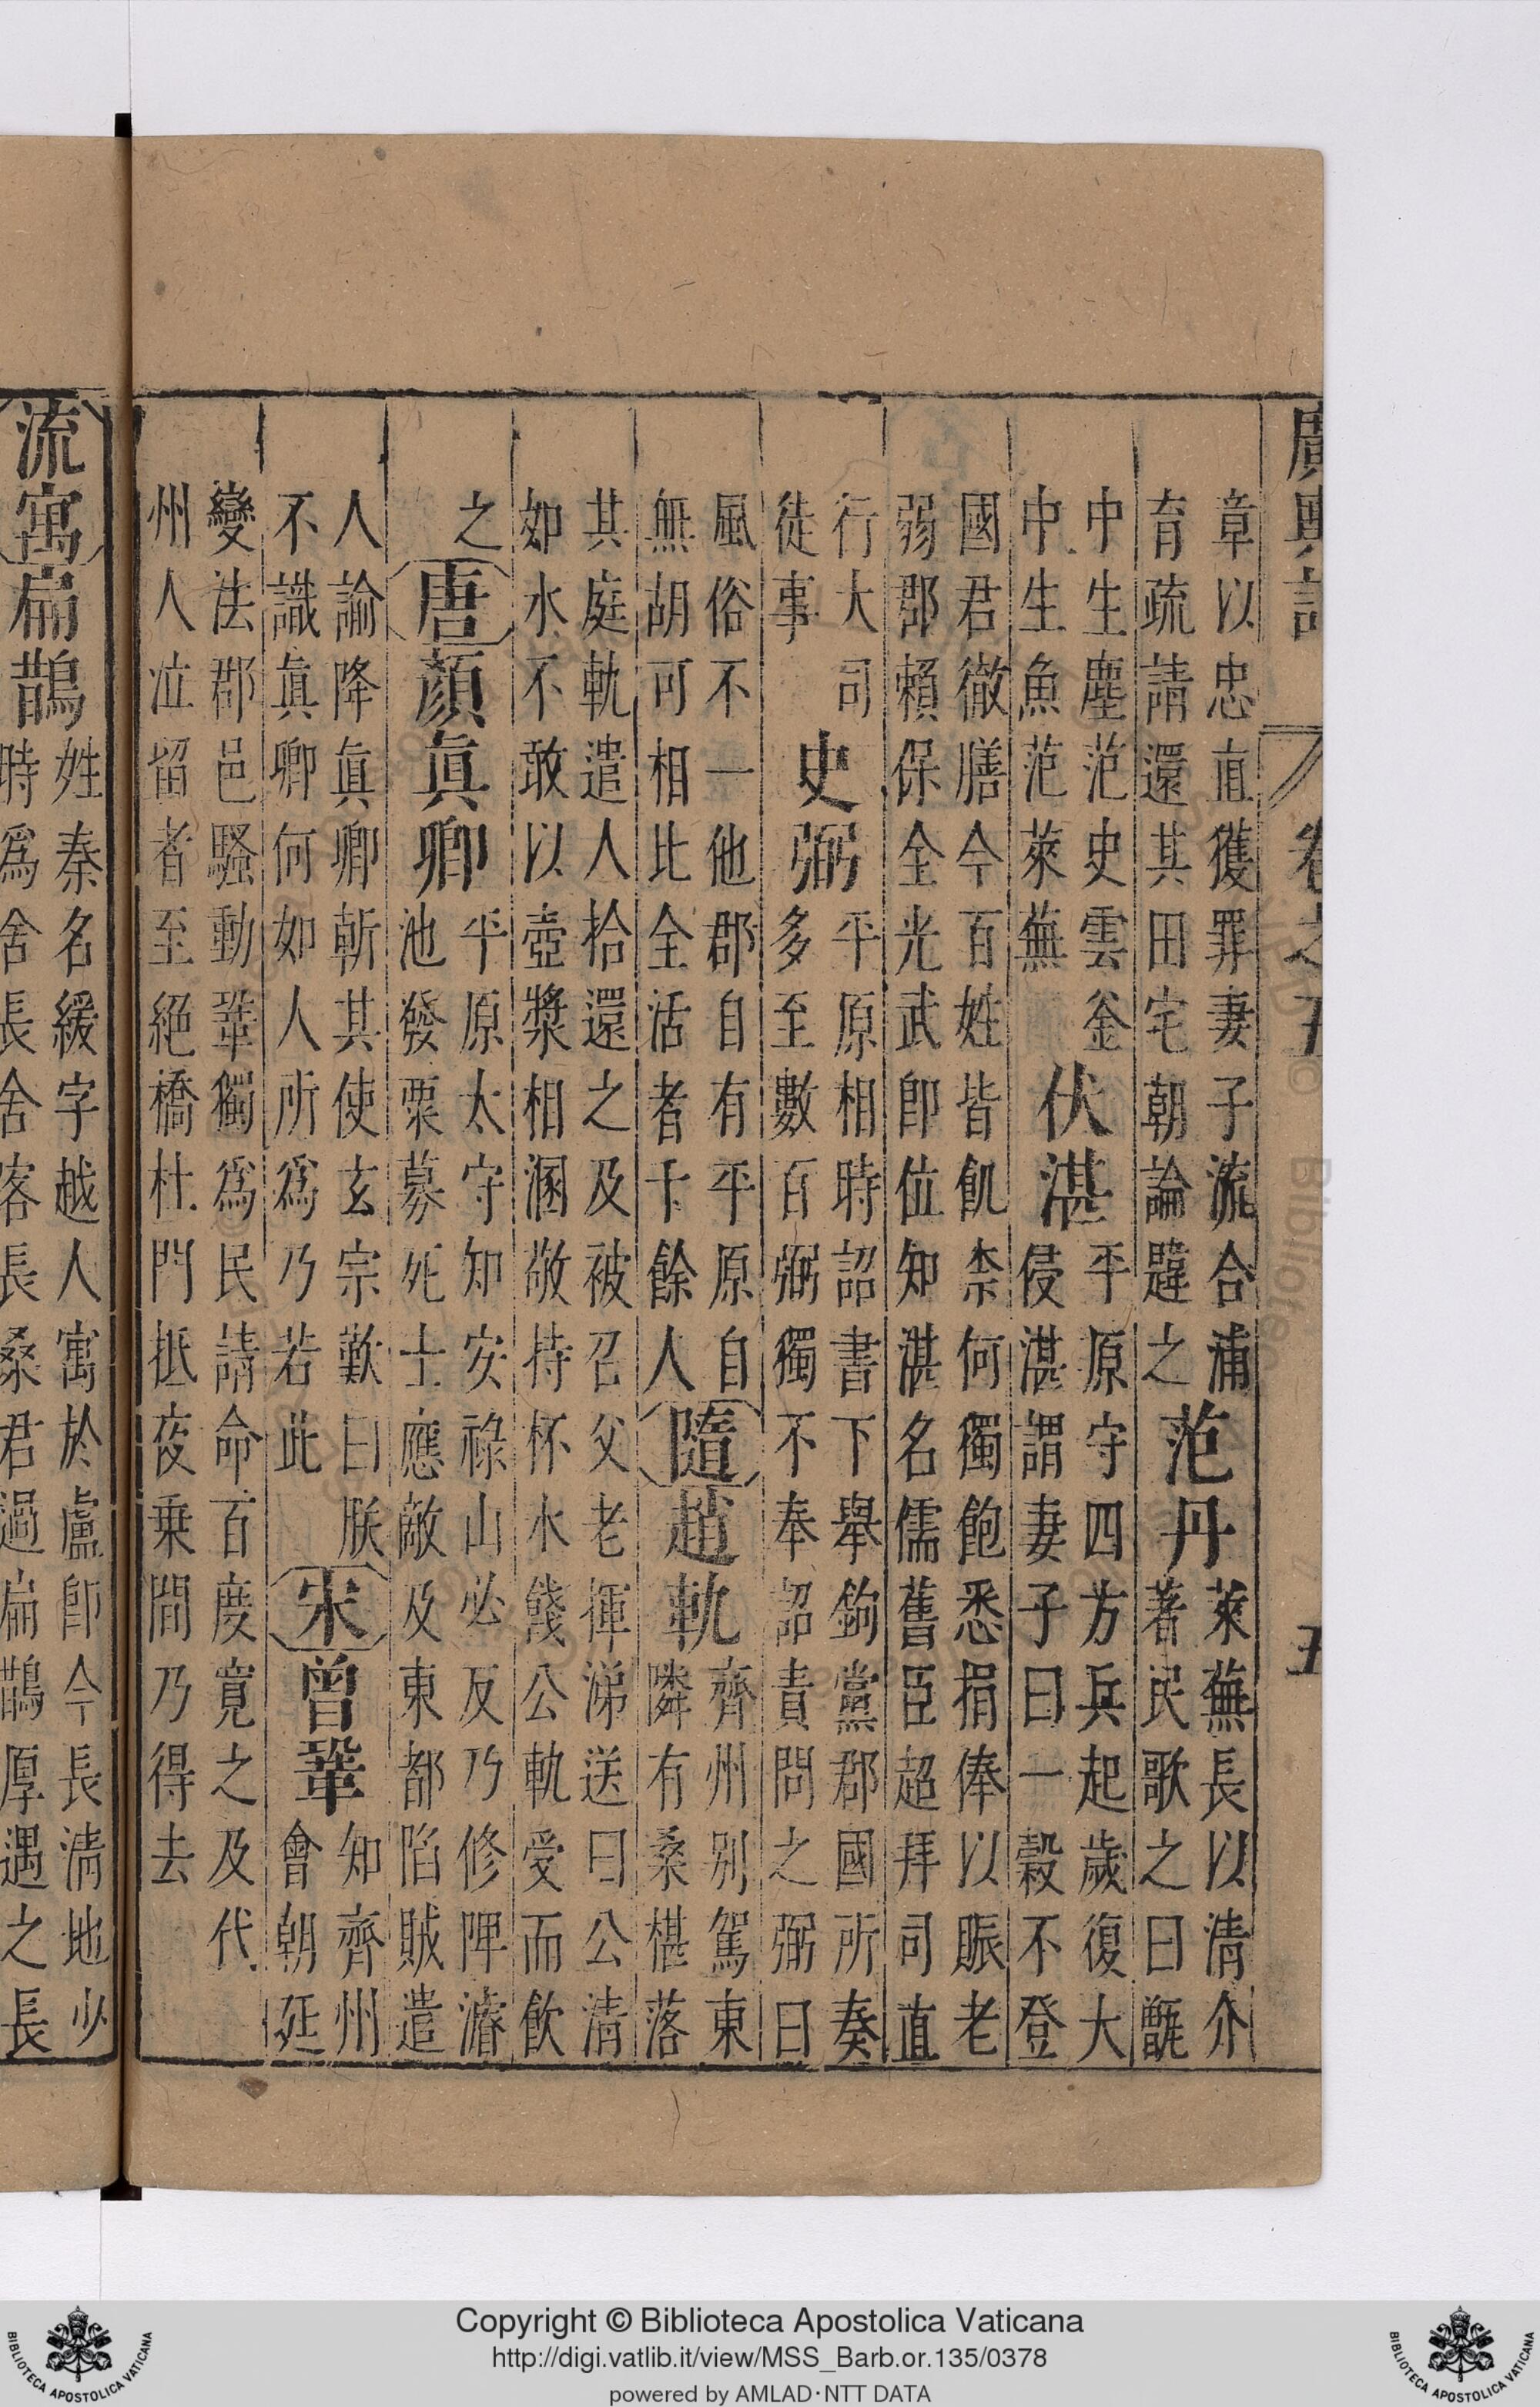 廣輿記 卷之五 五
章以忠直獲罪妻子流合浦
育疏請還其田宅朝論韙之
范丹
萊蕪長以清介
著民歌之曰甑
中生塵范史雲釜
中生魚范萊蕪
伏湛
平原守四方兵起歲復大
侵湛謂妻子曰一穀不登
國君徹膳今百姓皆飢柰何獨飽悉捐俸以賑老
弱郡賴保全光武即位知湛名儒舊臣超拜司直
行大司
徒事
史弼
平原相時詔書下舉鉤黨郡國所奏
多至數百弼獨不奉詔責問之弼曰
風俗不一他郡自有平原自
無胡可相比全活者千餘人
隋
趙軌
齊州別駕東
隣有桑椹落
其庭軌遣人拾還之及被召父老揮涕送曰公清
如水不敢以壺漿相溷敬持杯水餞公軌受而飲
之
唐
顏真卿
平原太守知安祿山必反乃修陴濬
池發粟募死士應敵及東都陷賊遣
人諭降真卿斬其使玄宗歎曰朕
不識真卿何如人所爲乃若此
宋
曾鞏
知齊州
會朝廷
變法郡邑騷動鞏獨爲民請命百度寬之及代
州人泣留者至絕橋杜門抵夜乗間乃得去
流寓
扁鵲
姓秦名緩字越人寓於盧卽今長淸地少
時爲舍長舍客長桑君過扁鵲厚遇之長
Copyright © Biblioteca Apostolica Vaticana
http://digi.vatlib.it/view/MSS_Barb.or.135/0378
powered by AMLAD·NTT DATA
BIBLIOTECA APOSTOLICA VATICANA
BIBLIOTECA APOSTOLICA VATICANA